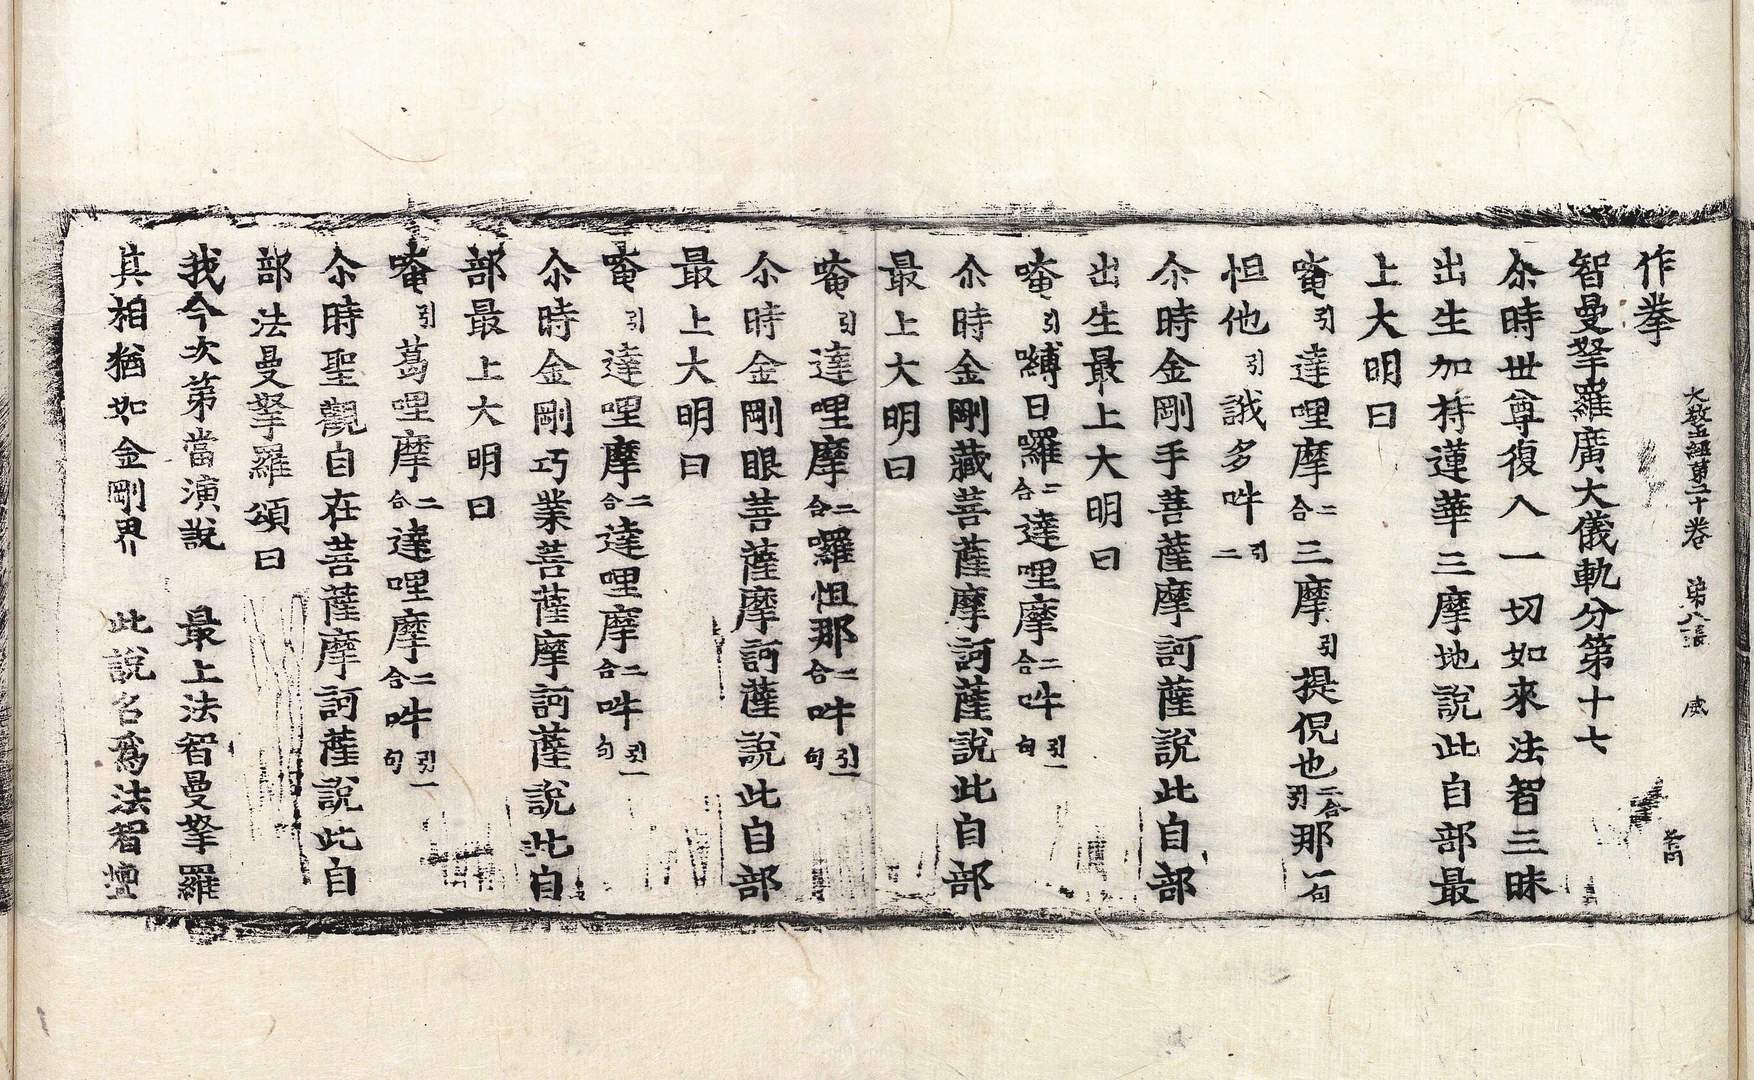 大教王經第二十卷 第八張 咸
作拳
智曼拏羅廣大儀軌分第十七
尒時世尊復入一切如來法智三昧
出生加持蓮華三摩地說此自部最
上大明曰
唵引達哩摩二合三摩引提倪也二合引那一句
怛他引誐多吽引二
尒時金剛手菩薩摩訶薩說此自部
出生最上大明曰
唵引嚩日囉二合達哩摩二合吽引一句
尒時金剛藏菩薩摩訶薩說此自部
最上大明曰
唵引達哩摩二合囉怛那二合吽引一句
尒時金剛眼菩薩摩訶薩說此自部
最上大明曰
唵引達哩摩二合達哩摩二合吽引一句
尒時金剛巧業菩薩摩訶薩說此自
部最上大明曰
唵引葛哩摩二合達哩摩二合吽引一句
尒時聖觀自在菩薩摩訶薩說此自
部法曼拏羅頌曰
我今次第當演說 最上法智曼拏羅
其相猶如金剛界 此說名爲法智壇